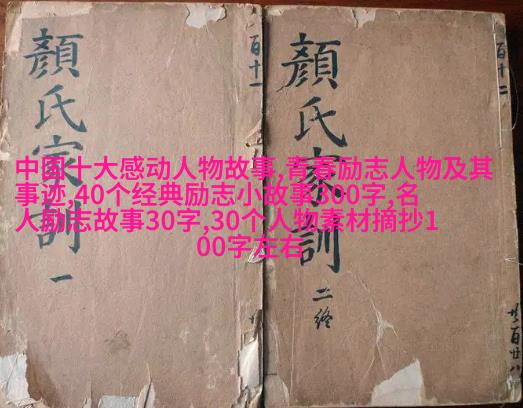 顏氏家訓
一
百十一
顏氏家訓
二終
百十二
中国十大感动人物故事,青春励志人物及其
事迹,40个经典励志小故事300字,名
人励志故事30字,30个人物素材摘抄1
00字左右